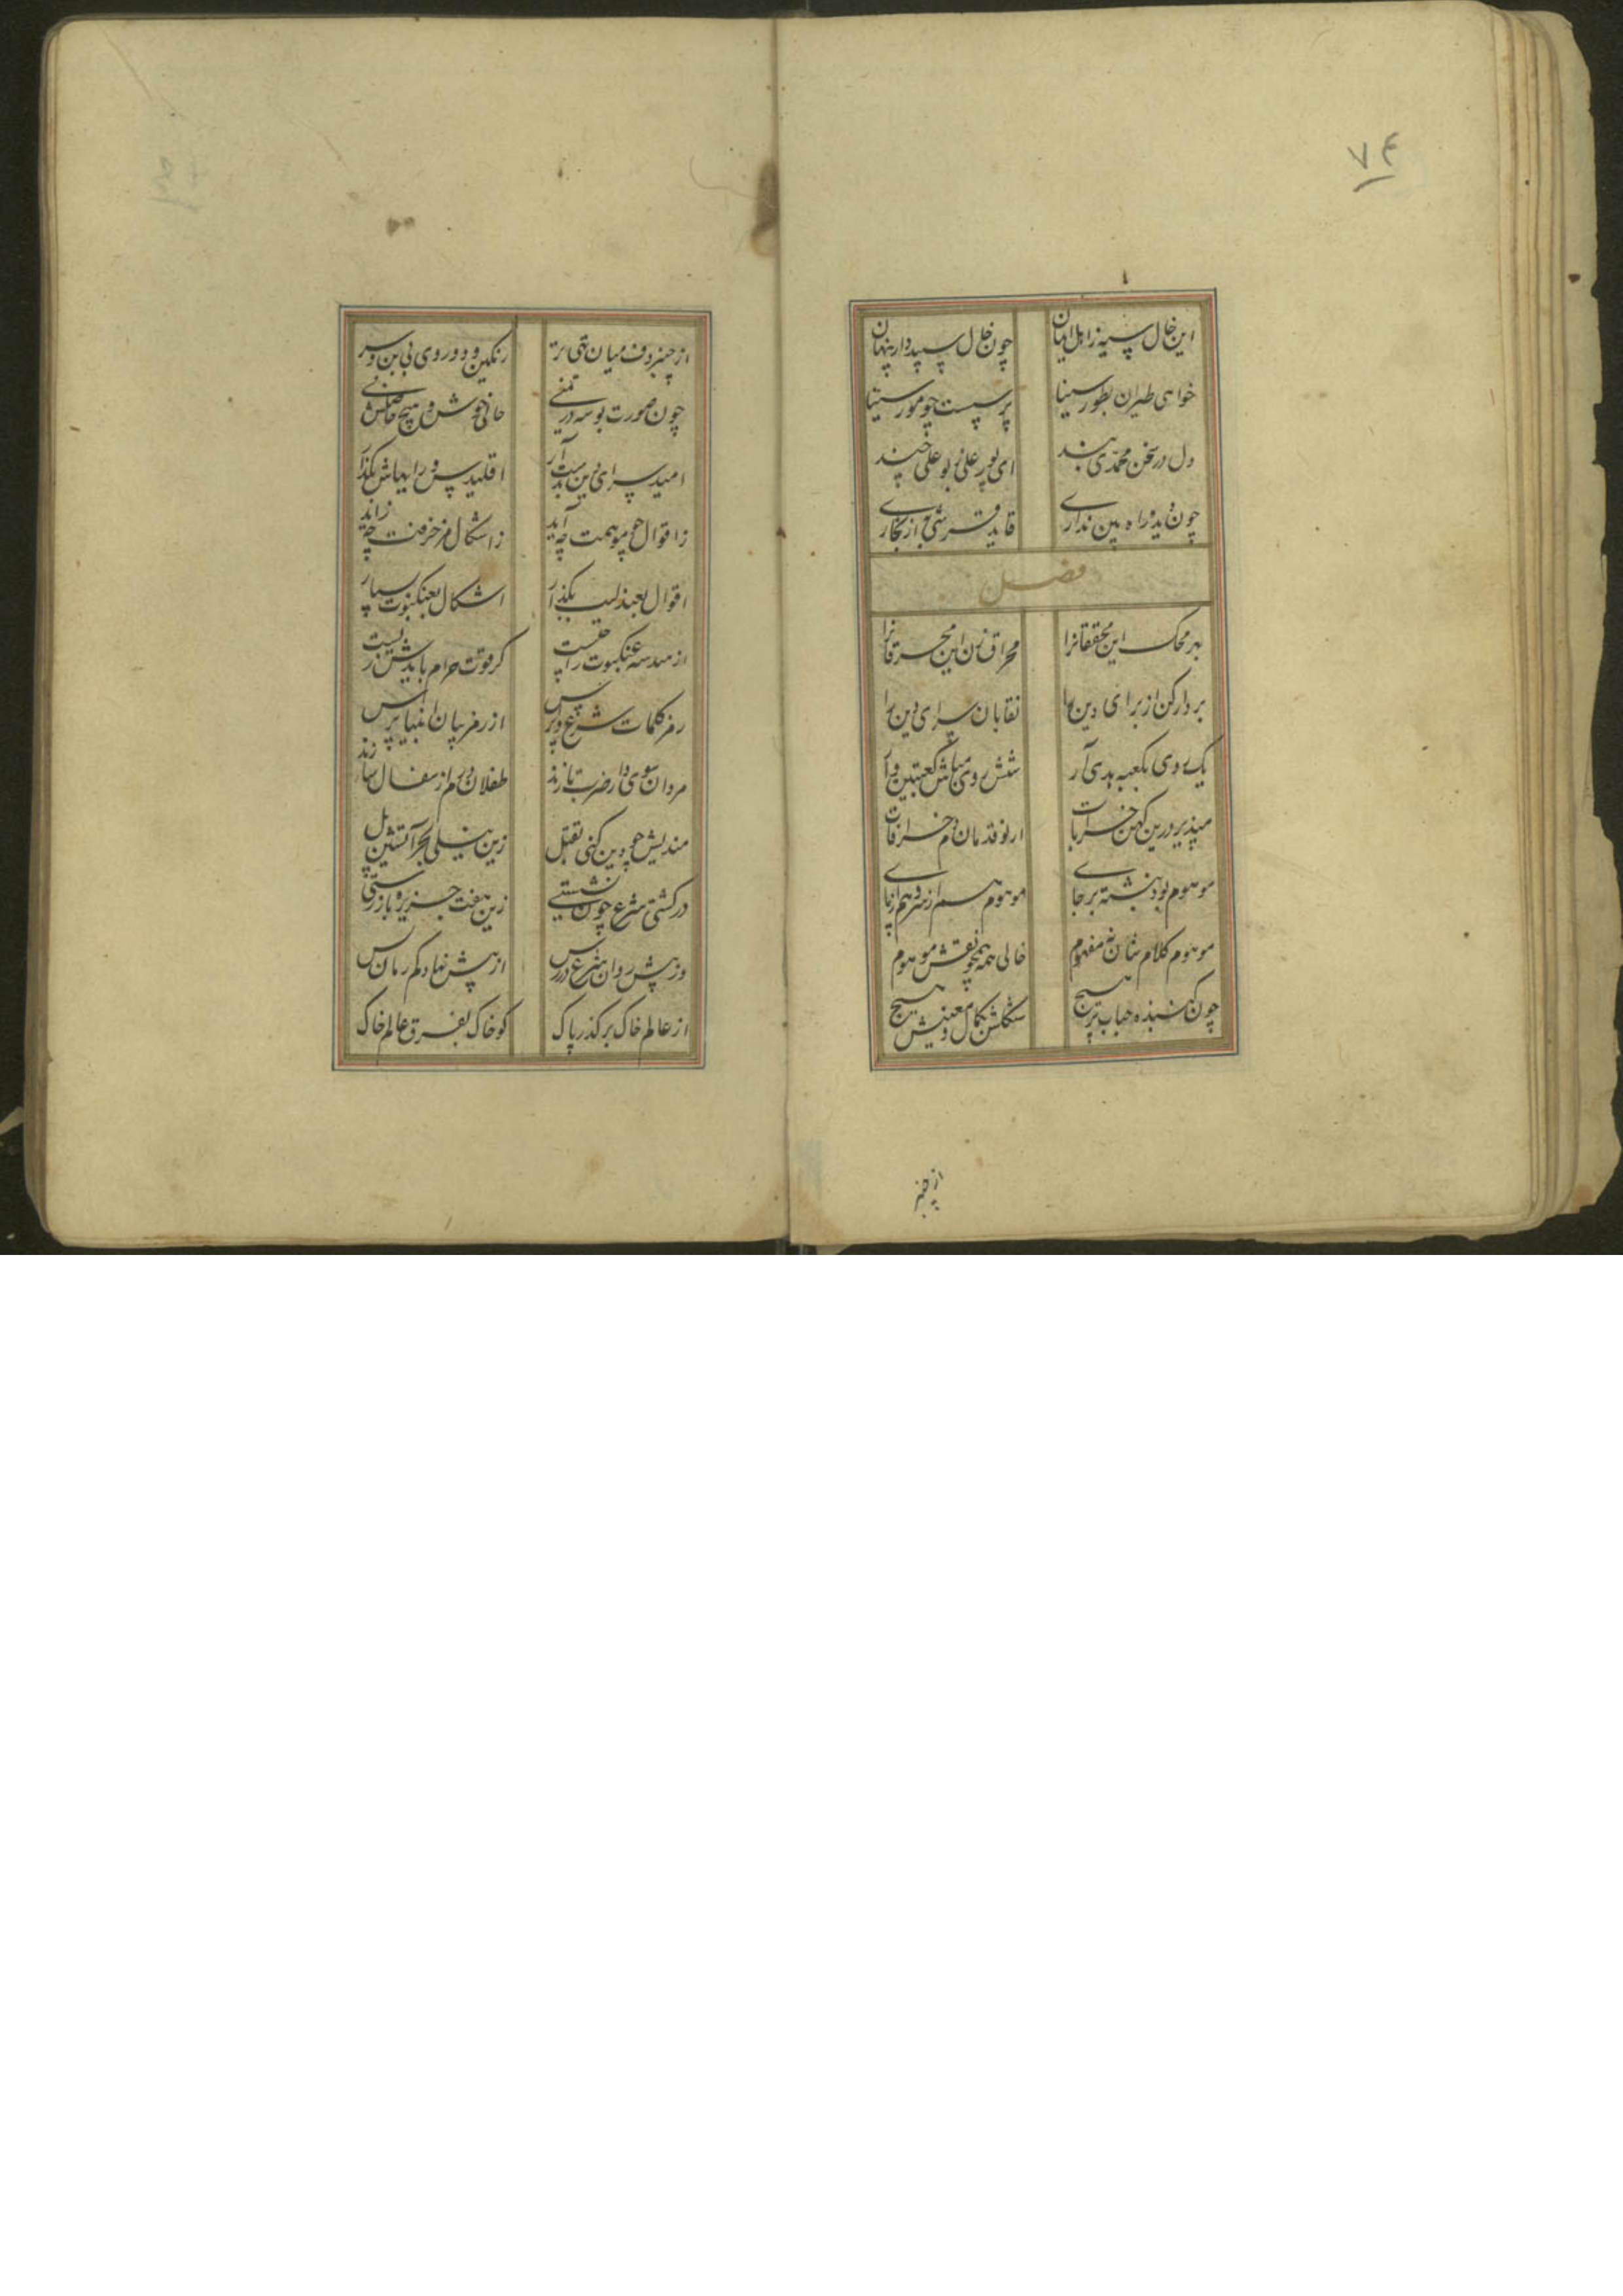 ۷۴
این خال سیه ز اهل ایمان
چون خال سپید دار پنهان
خواهی طیران بطور سینا
پر سست چو مور سینا
دل در سخن محمدی بند
ای پور علی ز بوعلی چند
چون دیده راه بین نداری
قاید قرشی به از بخاری
فصل
بر محک این محققانرا
محراق زن این محرقانرا
بردار کن از برای دین را
نقابان سرای دین را
یک روی بکعبه هدی آر
شش روی مباش کعبتین وار
مپذیر درین کهن خرابات
از نو قدمان دم خرافات
موهوم بود نشسته برجای
موهوم هم از سر و هم از پای
موهوم کلام شان نه مفهوم
خالی همه همچو نقش موهوم
چون گنبذه حباب بر هیچ
شکلش شکال و معنیش هیچ
از چنبر
از چنبر دف میان تهی تر
رنگین و دو روی و بی بن و سر
چون صورت بوسه در تمنی
خانی خوش و هیچ حاصلش نی
امید سرای دین بدست آر
اقلیدس و رایهاش بگذار
ز اقوال چو موهمت چه آید
ز اشکال مزخرفت چه زاید
اقوال بعندلیب بگذار
اشکال بعنکبوت بسپار
از هندسه عنکبوت را چیست
کز قوت حرام بایدش زیست
رمز کلمات شرع و پس
از رمز بیان انبیا پرس
مردان سوی دار ضرب تازند
طفلان درم از سفال سازند
مندیش چو دین کنی تقبل
زین نیلی بحر آتشین پل
در کشتی شرع چون نشستی
زین هفت جزیره باز رستی
وز پیش روان شرع درس
از پیش نهاد کم رمان س
از عالم خاک برگذر پاک
کو خاک بفرق عالم خاک